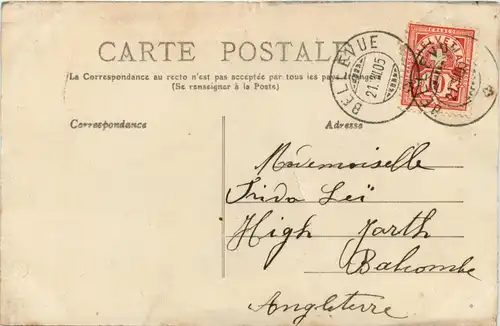 CARTE POSTALE
La Correspondance au recto n'est pas acceptée par tous les pays étrangers
(Se renseigner à la Poste)
BELLEVUE
21. 05
HELVETIA
10
Correspondance
Adresse
Mademoiselle
Frida Leï
High Marth
Balcombe
Angleterre